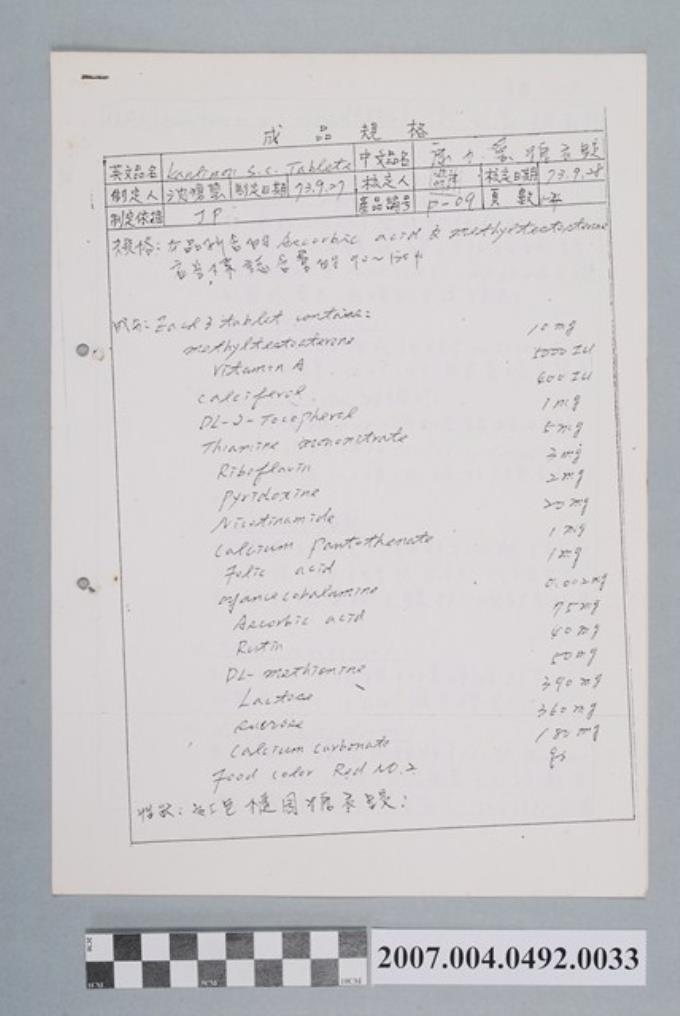 成品規格
英文品名 Kanlinon S.C. Tablets 中文品名 糖衣錠
制定人 制定日期 73.9.27 核定人 核定日期 73.9.28
制定依據 JP 產品編號 P-09 頁數
規格: 本品所含的 Ascorbic acid & methyltestosterone
應為標誌含量的 90~130%
成分: Each 3 tablet contains:
methyltestosterone 10 mg
Vitamin A 5000 IU
Calciferol 400 IU
DL-2-Tocopherol 1 mg
Thiamine mononitrate 5 mg
Riboflavin 3 mg
Pyridoxine 2 mg
Nicotinamide 20 mg
Calcium Pantothenate 1 mg
Folic acid 1 mg
cyanocobalamine 0.002 mg
Ascorbic acid 75 mg
Rutin 40 mg
DL-methionine 50 mg
Lactose 390 mg
sucrose 360 mg
Calcium carbonate 180 mg
Food color Red NO.2 qs
性狀: 紅色橢圓糖衣錠:
2007.004.0492.0033